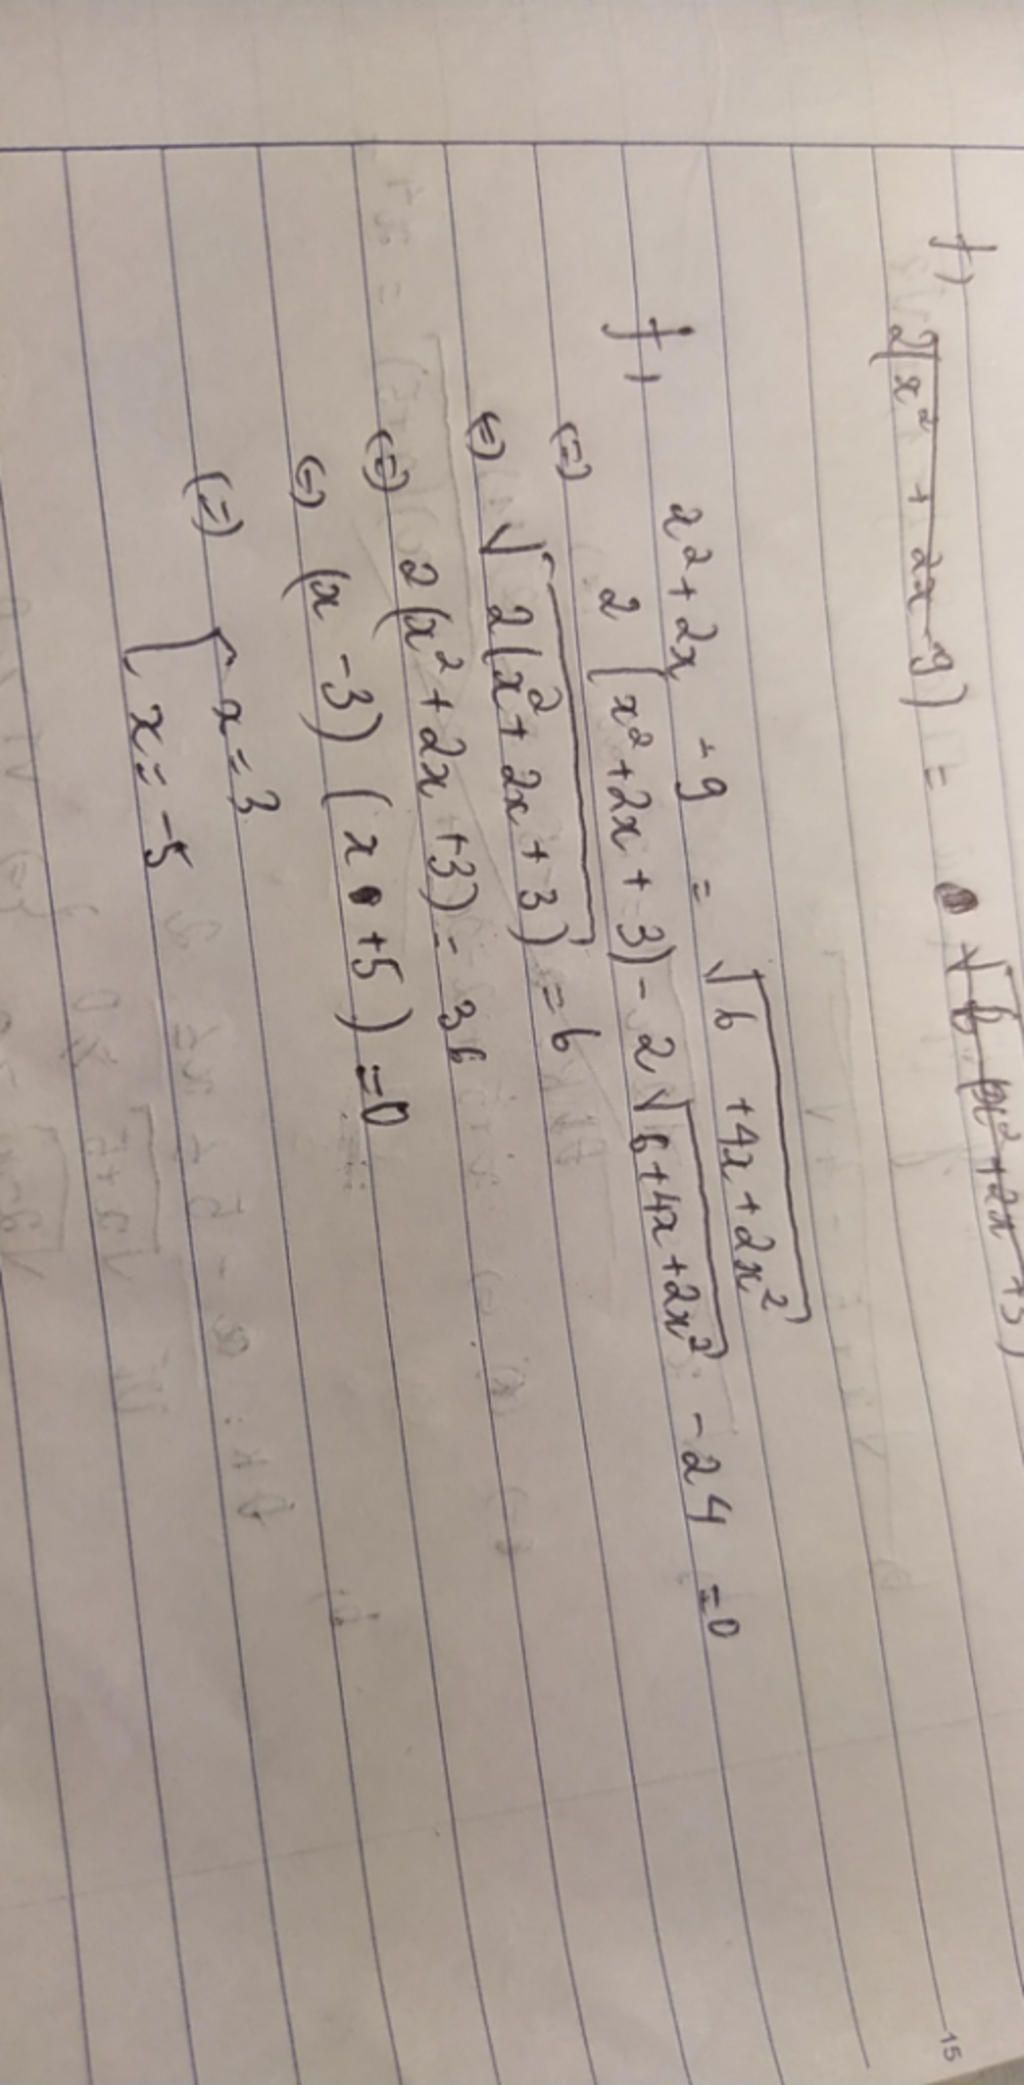 f) 2(x² + 2x - 9) = √6 (x² + 2x + 3)
f) x² + 2x - 9 = √6 + 4x + 2x²
(=) 2(x² + 2x + 3) - 2√6 + 4x + 2x² - 24 = 0
(=) √2(x² + 2x + 3) = 6
(=) 2(x² + 2x + 3) = 36
(=) (x - 3) (x + 5) = 0
(=) [ x = 3
x = -5
15